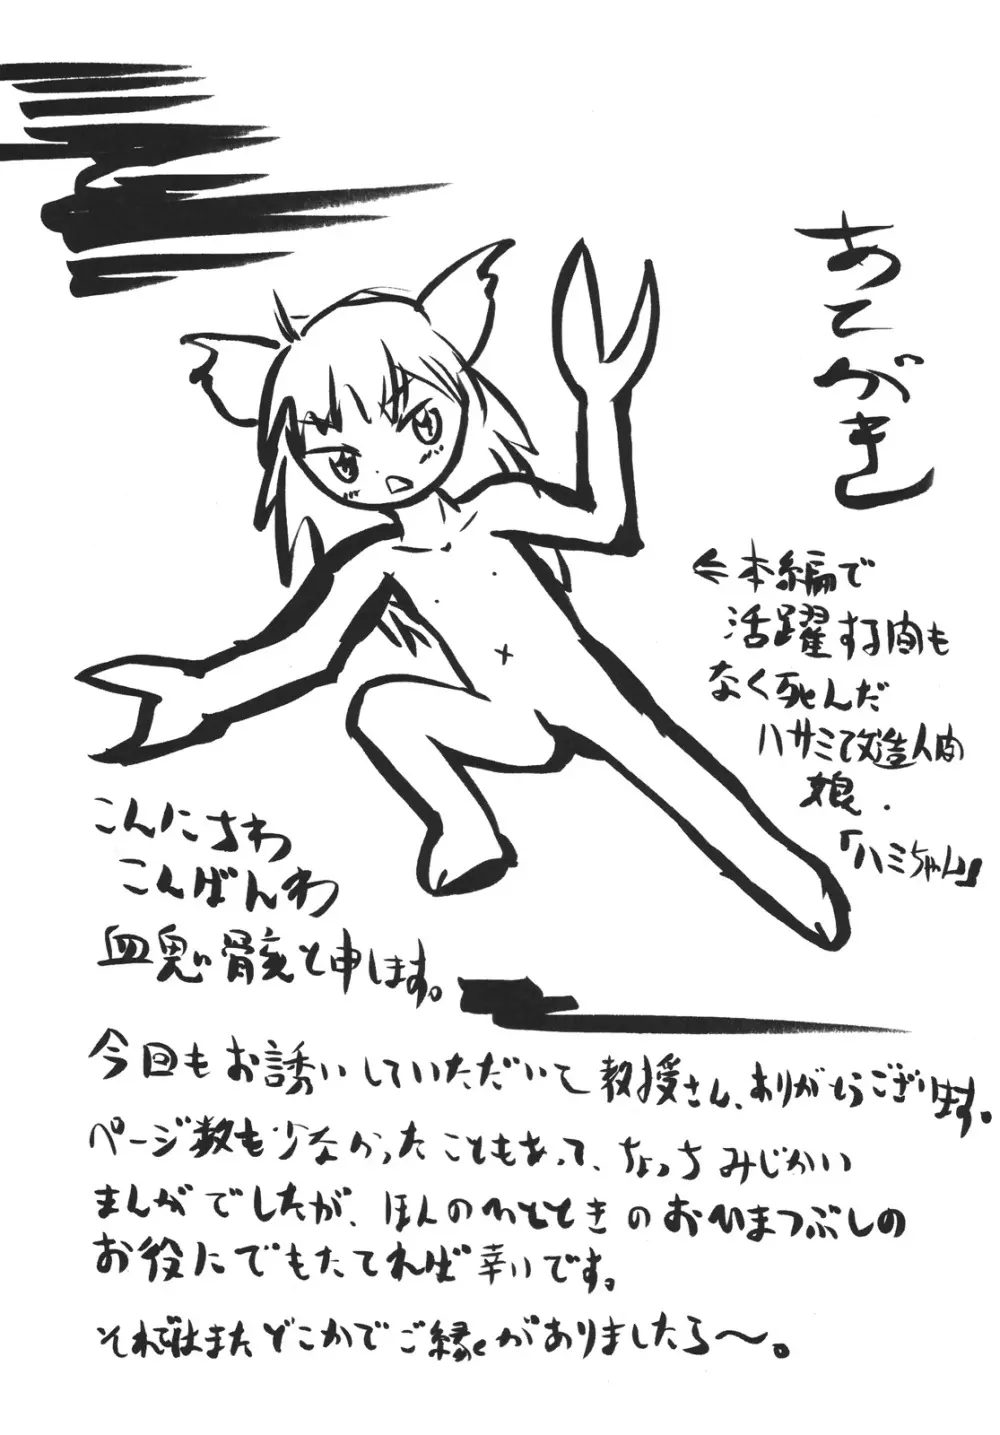 あとがき
⇐本編で
活躍する間も
なく死んだ
ハサミで改造人間
娘.
「ハミちゃん」
こんにちわ
こんばんわ
血鬼骨亥と申します。
今回もお誘いしていただいて教授さん、ありがとうございます。
ページ数も少なかったこともあって、ちょっちみじかい
まんがでしたが、ほんのひとときのおひまつぶしの
お役にでもたてれば幸いです。
それではまたどこかでご縁がありましたら〜。